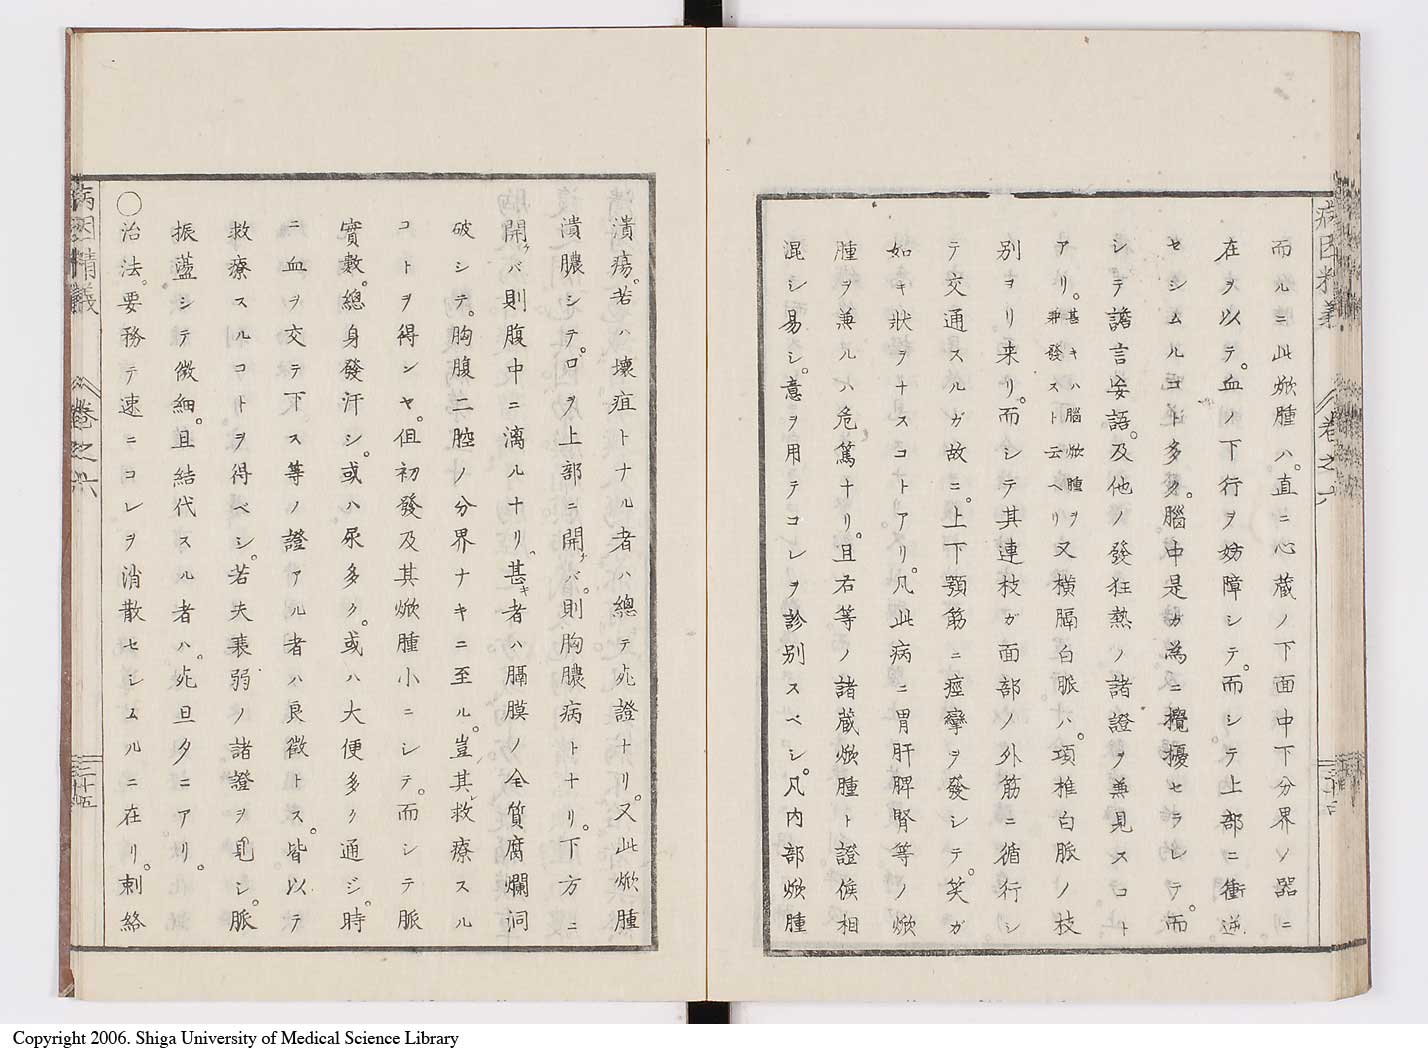 病因精義
卷之六
三十四
而ルニ此焮腫ハ。直ニ心蔵ノ下面中下分界ノ器ニ
在ヲ以テ。血ノ下行ヲ妨障シテ。而シテ上部ニ衝逆
セシムルコト多ク。腦中是カ為ニ攪擾セラレテ。而
シテ譫言妄語。及他ノ發狂熱ノ諸證ヲ兼見スコト
アリ。甚キハ腦焮腫ヲ兼發スト云ヘリ又横膈白脈ハ。項椎白脈ノ枝
別ヨリ来リ。而シテ其連枝ガ面部ノ外筋ニ循行シ
テ交通スルガ故ニ。上下顎筋ニ痙攣ヲ發シテ。笑ガ
如キ狀ヲナスコトアリ。凡此病ニ胃肝脾腎等ノ焮
腫ヲ兼ルハ危篤ナリ。且右等ノ諸蔵焮腫ト證候相
混シ易シ。意ヲ用テコレヲ診別スベシ。凡内部焮腫
潰瘍。若ハ壞疽トナル者ハ總テ死證ナリ。又此焮腫
潰膿シテ。口ヲ上部ニ開ケバ。則胸膿病トナリ。下方ニ
開ケバ則腹中ニ漓ルナリ。甚キ者ハ膈膜ノ全質腐爛洞
破シテ。胸腹二腔ノ分界ナキニ至ル。豈其レ救療スル
コトヲ得ンヤ。但初發及其焮腫小ニシテ。而シテ脈
實數。總身發汗シ。或ハ尿多ク。或ハ大便多ク通ジ。時
ニ血ヲ交テ下ス等ノ證アル者ハ良徴トス。皆以テ
救療スルコトヲ得ベシ。若夫衰弱ノ諸證ヲ見シ。脈
振蘯シテ微細。且結代スル者ハ。死旦夕ニアリ。
○治法。要務テ速ニコレヲ消散セシムルニ在リ。刺絡
病因精議
卷之六
三十五
Copyright 2006. Shiga University of Medical Science Library